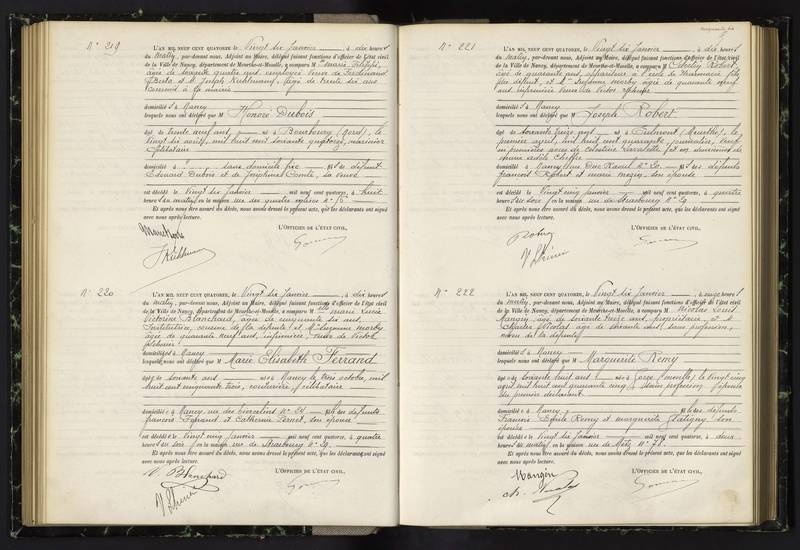 N° 219
L'AN MIL NEUF CENT QUATORZE, le Vingt six Janvier, à dix heures
du matin, par-devant nous, Adjoint au Maire, délégué faisant fonctions d'officier de l'état civil
de la Ville de Nancy, département de Meurthe-et-Moselle, a comparu M
âgée de soixante quatre ans, employée veuve de Ferdinand
et M Joseph Kuhlmann, âgé de trente six ans
à la mairie
domiciliés à Nancy
lesquels nous ont déclaré que M Honoré Dubois
âgé de trente neuf ans, né à Bourbourg (Nord), le
vingt six août, mil huit cent soixante quatorze, marinier
célibataire
domicilié à sans domicile fixe fils de défunt
Edouard Dubois et de Joséphine Comte, sa veuve
est décédé le vingt six Janvier mil neuf cent quatorze, à huit
heures du matin, en la maison rue des quatre églises n°
Et après nous être assuré du décès, nous avons dressé le présent acte, que les déclarants ont signé
avec nous après lecture.
L'OFFICIER DE L'ÉTAT CIVIL,
N° 220
L'AN MIL NEUF CENT QUATORZE, le Vingt six Janvier, à dix heures
du matin, par-devant nous, Adjoint au Maire, délégué faisant fonctions d'officier de l'état civil
de la Ville de Nancy, département de Meurthe-et-Moselle, a comparu Mlle Marie Lucie
Victorine Blanchard, âgée de cinquante six ans,
Institutrice, cousine de la défunte et Me Suzanne
âgée de quarante neuf ans, infirmière, veuve de Victor
domiciliées à Nancy
lesquelles nous ont déclaré que M Marie Elisabeth Ferrand
âgée de soixante ans née à Nancy le trois octobre, mil
huit cent cinquante trois, couturière, célibataire
domiciliée à Nancy rue des n° 24 fille des défunts
François Ferrand et Catherine son épouse
est décédée le vingt cinq Janvier mil neuf cent quatorze, à quatre
heures du soir en la maison rue de Strasbourg n° 29
Et après nous être assuré du décès, nous avons dressé le présent acte, que les déclarants ont signé
avec nous après lecture.
L'OFFICIER DE L'ÉTAT CIVIL,
V. Blanchard
N° 221
L'AN MIL NEUF CENT QUATORZE, le Vingt six Janvier, à dix heures
du matin, par-devant nous, Adjoint au Maire, délégué faisant fonctions d'officier de l'état civil
de la Ville de Nancy, département de Meurthe-et-Moselle, a comparu M Charles Robert,
âgé de quarante ans, appariteur à l'école de Pharmacie fils
du défunt, et Me Suzanne âgée de quarante neuf
ans infirmière veuve de Victor
domiciliés à Nancy
lesquels nous ont déclaré que M Joseph Robert
âgé de soixante treize ans né à Pulnoy (Meurthe), le
premier avril, mil huit cent quarante, veuf
en premières noces de Célestine et en secondes de
domicilié à Nancy rue Duc Raoul n° 20 fils des défunts
François Robert et Marie son épouse
est décédé le vingt cinq janvier mil neuf cent quatorze, à quatre
heures du soir en la maison rue de Strasbourg n° 29
Et après nous être assuré du décès, nous avons dressé le présent acte, que les déclarants ont signé
avec nous après lecture.
L'OFFICIER DE L'ÉTAT CIVIL,
Robert
N° 222
L'AN MIL NEUF CENT QUATORZE, le Vingt six Janvier, à onze heures
du matin, par-devant nous, Adjoint au Maire, délégué faisant fonctions d'officier de l'état civil
de la Ville de Nancy, département de Meurthe-et-Moselle, a comparu M Nicolas Louis
Mangin, âgé de soixante treize ans, propriétaire, et M
Charles Nicolas âgé de soixante sans profession,
de la défunte
domiciliés à Nancy
lesquels nous ont déclaré que M Marguerite Remy
âgée de soixante huit ans née à (Moselle) le vingt cinq
avril mil huit cent quarante cinq, sans profession, épouse
du premier déclarant
domiciliée à Nancy fille des défunts
François Remy et Marguerite son
épouse
est décédée le vingt six Janvier mil neuf cent quatorze, à deux
heures du matin, en la maison rue de Metz n°
Et après nous être assuré du décès, nous avons dressé le présent acte, que les déclarants ont signé
avec nous après lecture.
L'OFFICIER DE L'ÉTAT CIVIL,
Mangin
Ch. Nicolas